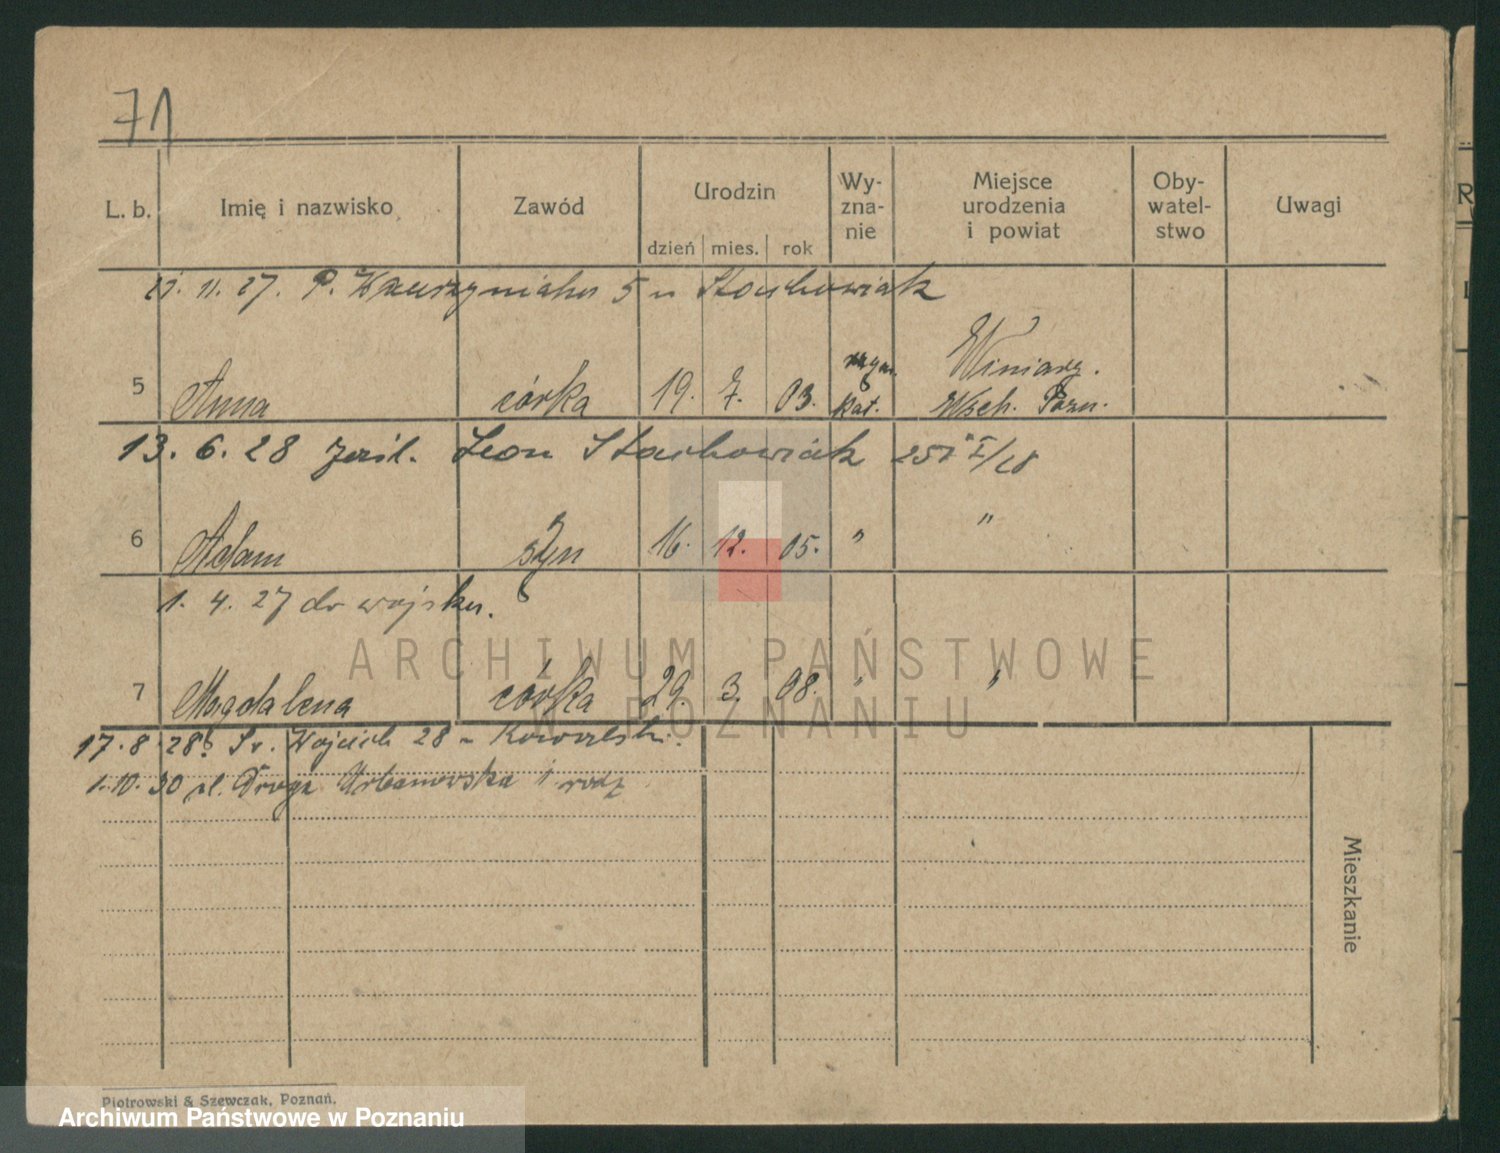 71
L. b. Imię i nazwisko Zawód Urodzin Wy-zna-nie Miejsce urodzenia i powiat Oby-watel-stwo Uwagi
dzień mies. rok
11. 27. P. Wawrzyniaka 5 u Stachowiak
rzym. Winiary.
5 Anna córka 19. 7. 03. kat. Wsch. Pozn.
13. 6. 28 Leon Stachowiak
6 Adam syn 16. 12. 05. " "
1. 4. 27 do wojska.
ARCHIWUM PAŃSTWOWE
7 Magdalena córka 29. 3. 08. " "
W POZNANIU
17. 8. 28 Św. Wojciech 28
1. 10. 30 Droga Urbanowska 1
Mieszkanie
Piotrowski & Szewczak, Poznań.
Archiwum Państwowe w Poznaniu